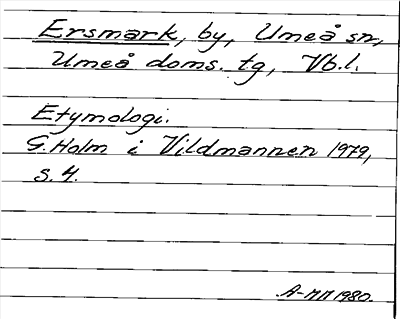 Ersmark, by, Umeå sn,
Umeå doms. tg, Vb.l.
Etymologi.
G. Holm i Vildmannen 1979,
s. 4.
A-MM 1980.